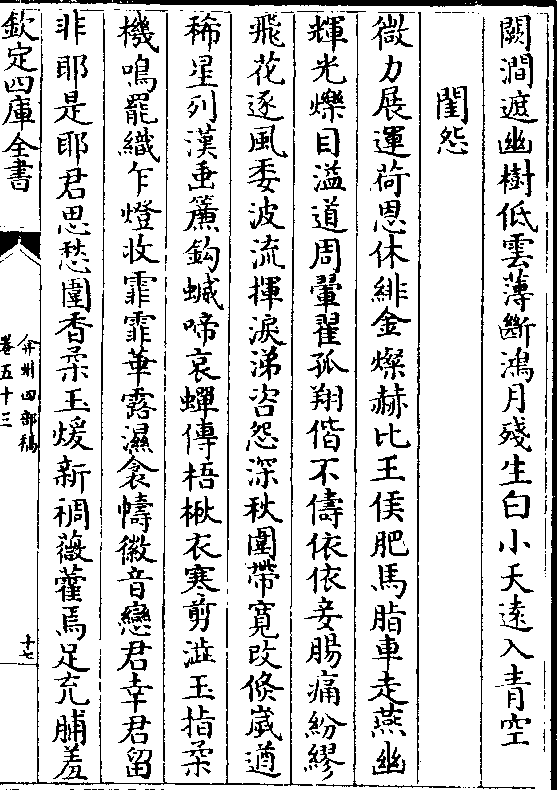 闕澗遮幽樹低雲薄斷鴻月殘生白小天遠入青空
閨怨
微力展運荷恩休緋金燦赫比王侯肥馬脂車走燕幽
輝光爍目溢道周翬翟孤翔偕不儔依依妾腸痛紛繆
飛花逐風委波流揮淚涕咨怨深秋圍帶寬改倐嵗遒
稀星列漢垂簾鈎蜮啼哀蟬傳梧楸衣寒剪澁玉指柔
機鳴罷織乍燈收霏霏華露濕衾幬徽音戀君幸君留
非耶是耶君思愁圍香柔玉煖新裯薇藿焉足充脯羞
欽定四庫全書
弇州四部稿
卷五十三
十七